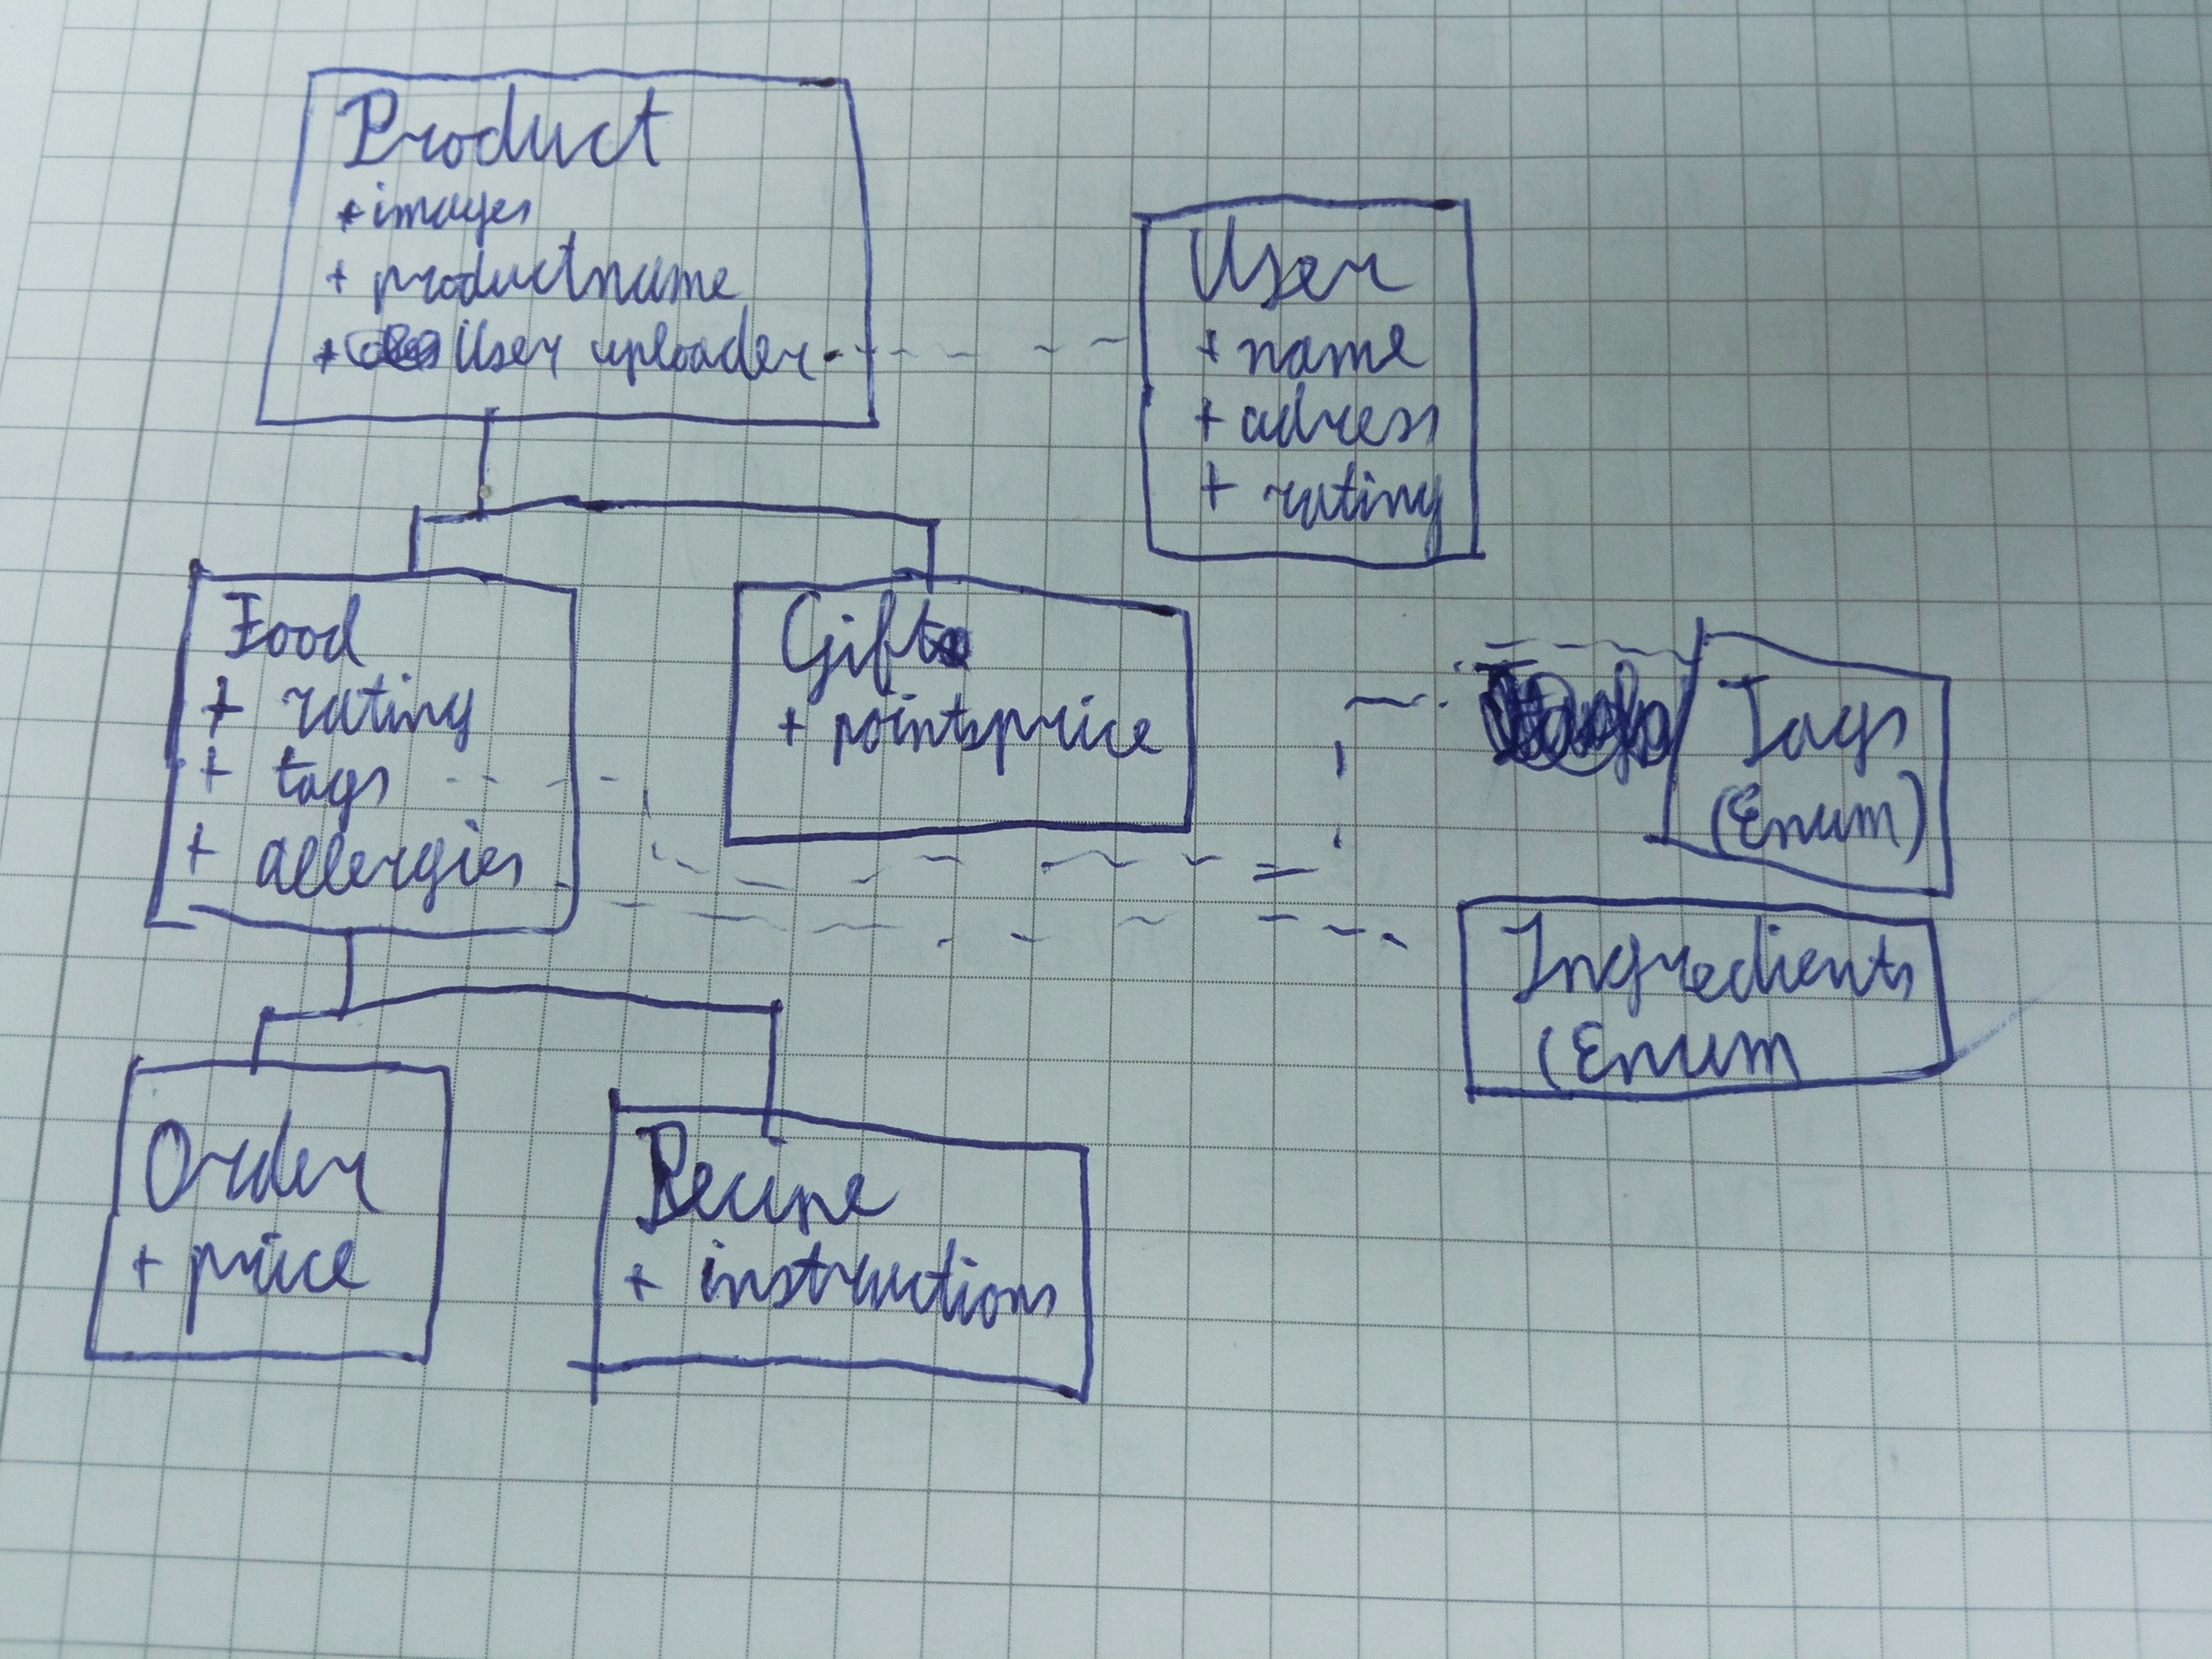 Product
+ images
+ productname
+ User uploader
User
+ name
+ adress
+ rating
Food
+ rating
+ tags
+ allergies
Gift
+ pointsprice
Tags
(Enum)
Ingredients
(Enum
Order
+ price
Recipe
+ instructions